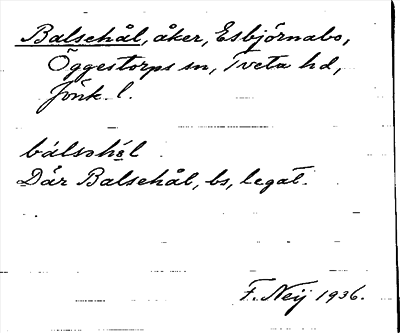 Balsehål, åker, Esbjörnabo,
Öggestorps sn, Tveta hd,
Jönk. l.
bálsəhė́l
Där Balsehål, bs, legat.
F. Neij 1936.